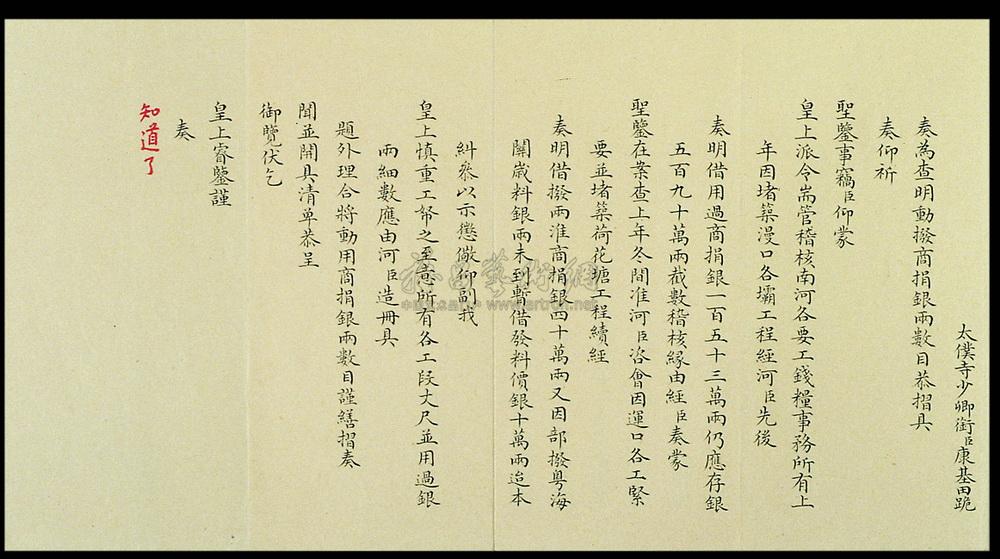 太僕寺少卿銜臣康基田跪
奏為查明動撥商捐銀兩數目恭摺具
奏仰祈
聖鑒事竊臣仰蒙
皇上派令耑管稽核南河各要工錢糧事務所有上
年因堵築漫口各壩工程經河臣先後
奏明借用過商捐銀一百五十三萬兩仍應存銀
五百九十萬兩截數稽核緣由經臣奏蒙
聖鑒在案查上年冬間准河臣咨會因運口各工緊
要並堵築荷花塘工程續經
奏明借撥兩淮商捐銀四十萬兩又因部撥粤海
關歲料銀兩未到暫借發料價銀十萬兩迨本
糾叅以示懲儆仰副我
皇上慎重工帑之至意所有各工段丈尺並用過銀
兩細數應由河臣造冊具
題外理合將動用商捐銀兩數目謹繕摺奏
聞並開具清单恭呈
御覽伏乞
皇上睿鑒謹
奏
知道了